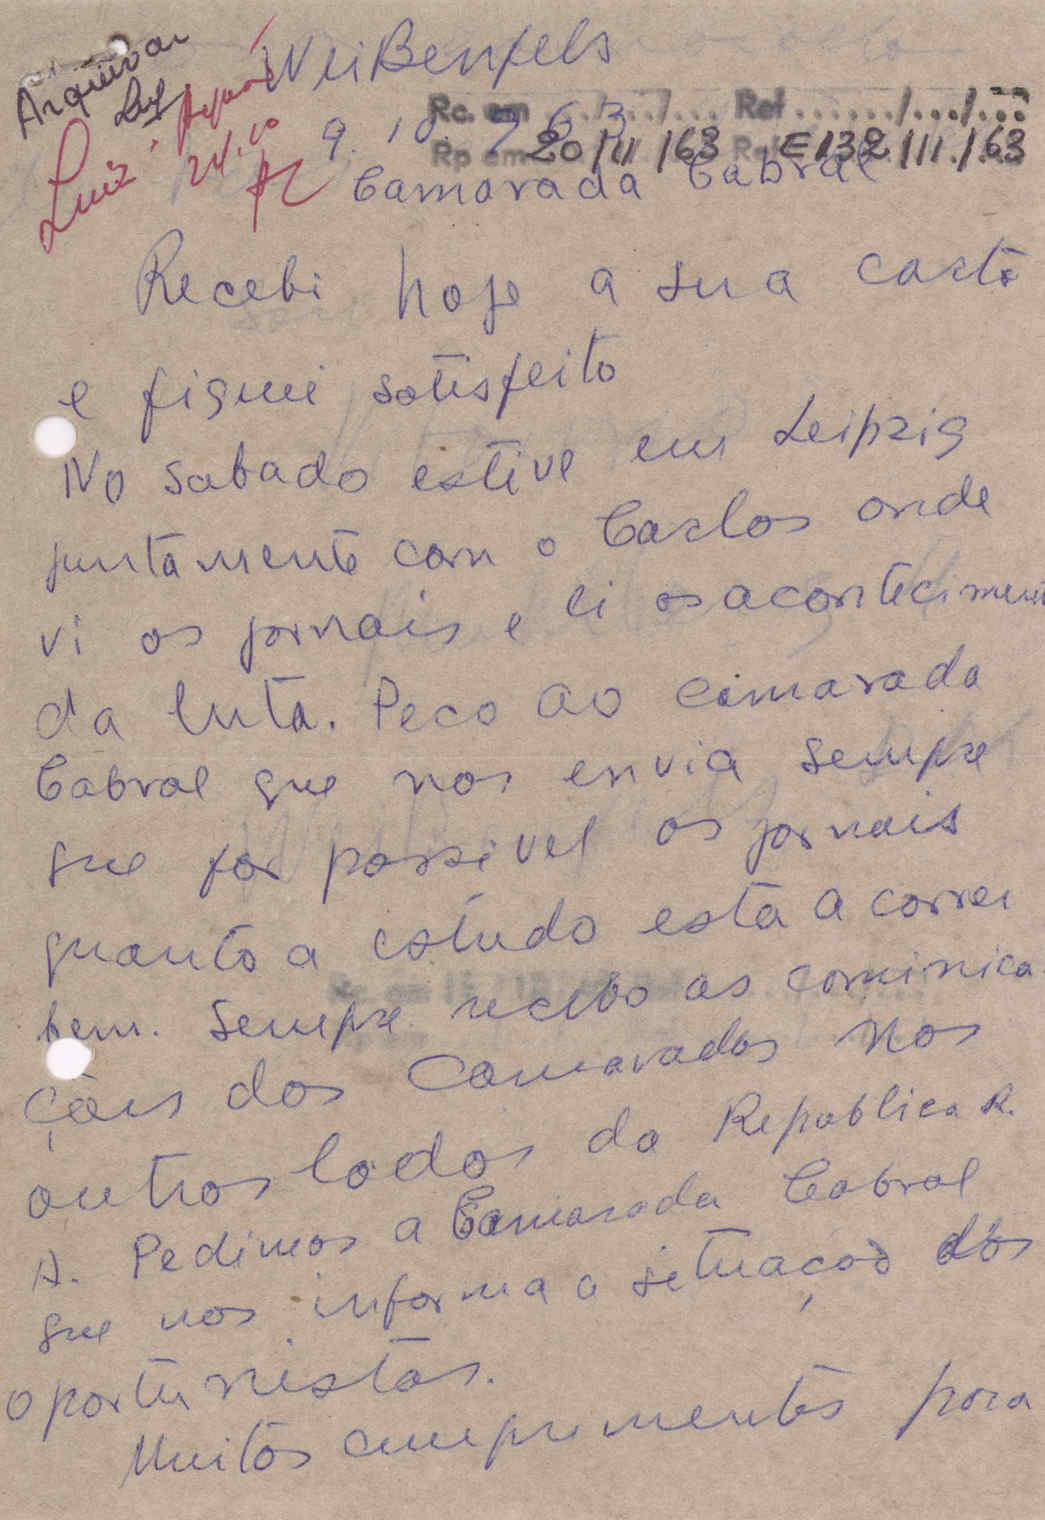 Arquivar
Luiz
24.10
WeiBenfels
Rc. em .../.../... Ref ....../.../...
9.10.963
Rp em 20/11/63 Ref E132/III/63
Camarada Cabral
Recebi hoje a sua carta
e fiquei satisfeito
No sabado estive em Leipzig
juntamente com o Carlos onde
vi os jornais e li os aconteciment
da luta. Peco ao camarada
Cabral que nos envia sempre
que for possivel os jornais
quanto a estudo está a correr
bem. Sempre recebo as cominica
ções dos Camaradas nos
outros lados da Republica R.
A. Pedimos a Camarada Cabral
que nos informa a situação dos
oportunistas.
Muitos cumprimentos para